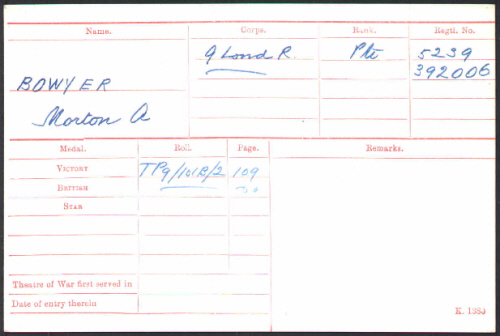 Name. Corps. Rank. Regtl. No.
9 Lond R. Pte 5239
392006
BOWYER
Morton A
Medal. Roll. Page. Remarks.
VICTORY TP9/101B/2 109
BRITISH do
STAR
Theatre of War first served in
Date of entry therein
K. 1380